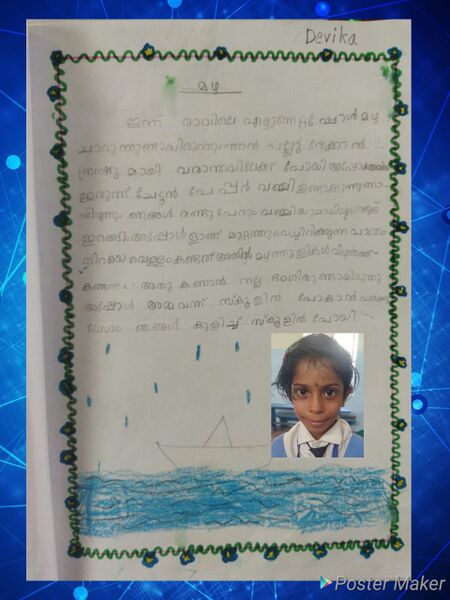 Devika
മഴ
ഇന്ന് രാവിലെ എഴുന്നേറ്റപ്പോൾ മഴ
ചാറുന്നുണ്ടായിരുന്നു ഞാൻ പല്ലു തേക്കാൻ
ബ്രഷു മായി വരാന്തയിലേക്ക് പോയി അപ്പോൾ
ഇരുന്ന് ചേട്ടൻ പേപ്പർ വഞ്ചി ഉണ്ടാക്കുന്നുണ്ടാ
യിരുന്നു ഞങ്ങൾ രണ്ടു പേരും വഞ്ചിയുമായി
ഇറങ്ങി അപ്പോൾളാണ് മുറ്റത്തു വെച്ചിരിക്കുന്ന പാത്രം
നിറയെ വെള്ളം കണ്ടത് അതിൽ മഴത്തുള്ളികൾ വീഴുന്നത്
കണ്ടു അതു കണാൻ നല്ല ഭംഗിയുണ്ടായിരുന്നു
അപ്പോൾ അമ്മ വന്ന് സ്കൂളിൽ പോകാൻ പറഞ്ഞു
വേഗം ഞങ്ങൾ കുളിച്ച് സ്കൂളിൽ പോയി
Poster Maker